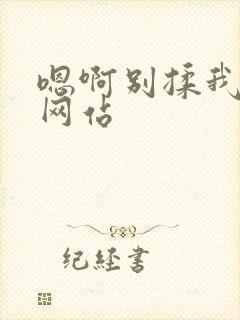 嗯啊别揉我
网佔
纪经书